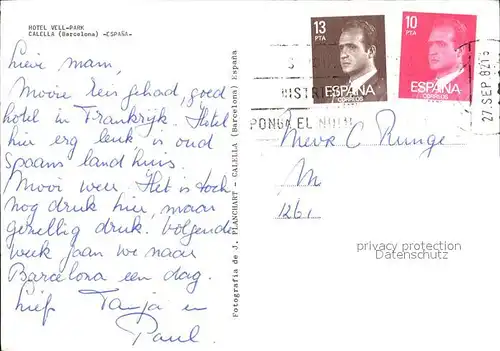 HOTEL VELL-PARK
CALELLA (Barcelona) -ESPAÑA-
lieve mam,
Mooie reis gehad, goed
hotel in Frankrijk. Hotel
hier erg leuk is oud
spaans landhuis.
Mooi weer. Het is toch
nog druk hier, maar
gezellig druk. Volgende
week gaan we naar
Barcelona een dag.
liefs Tanja en
Paul.
Fotografia de J. PLANCHART - CALELLA (Barcelona) España
13
PTA
ESPAÑA
CORREOS
10
PTA
ESPAÑA
CORREOS
PONGA EL
27 SEP 82
Mevr C Runge
1261
privacy protection
Datenschutz